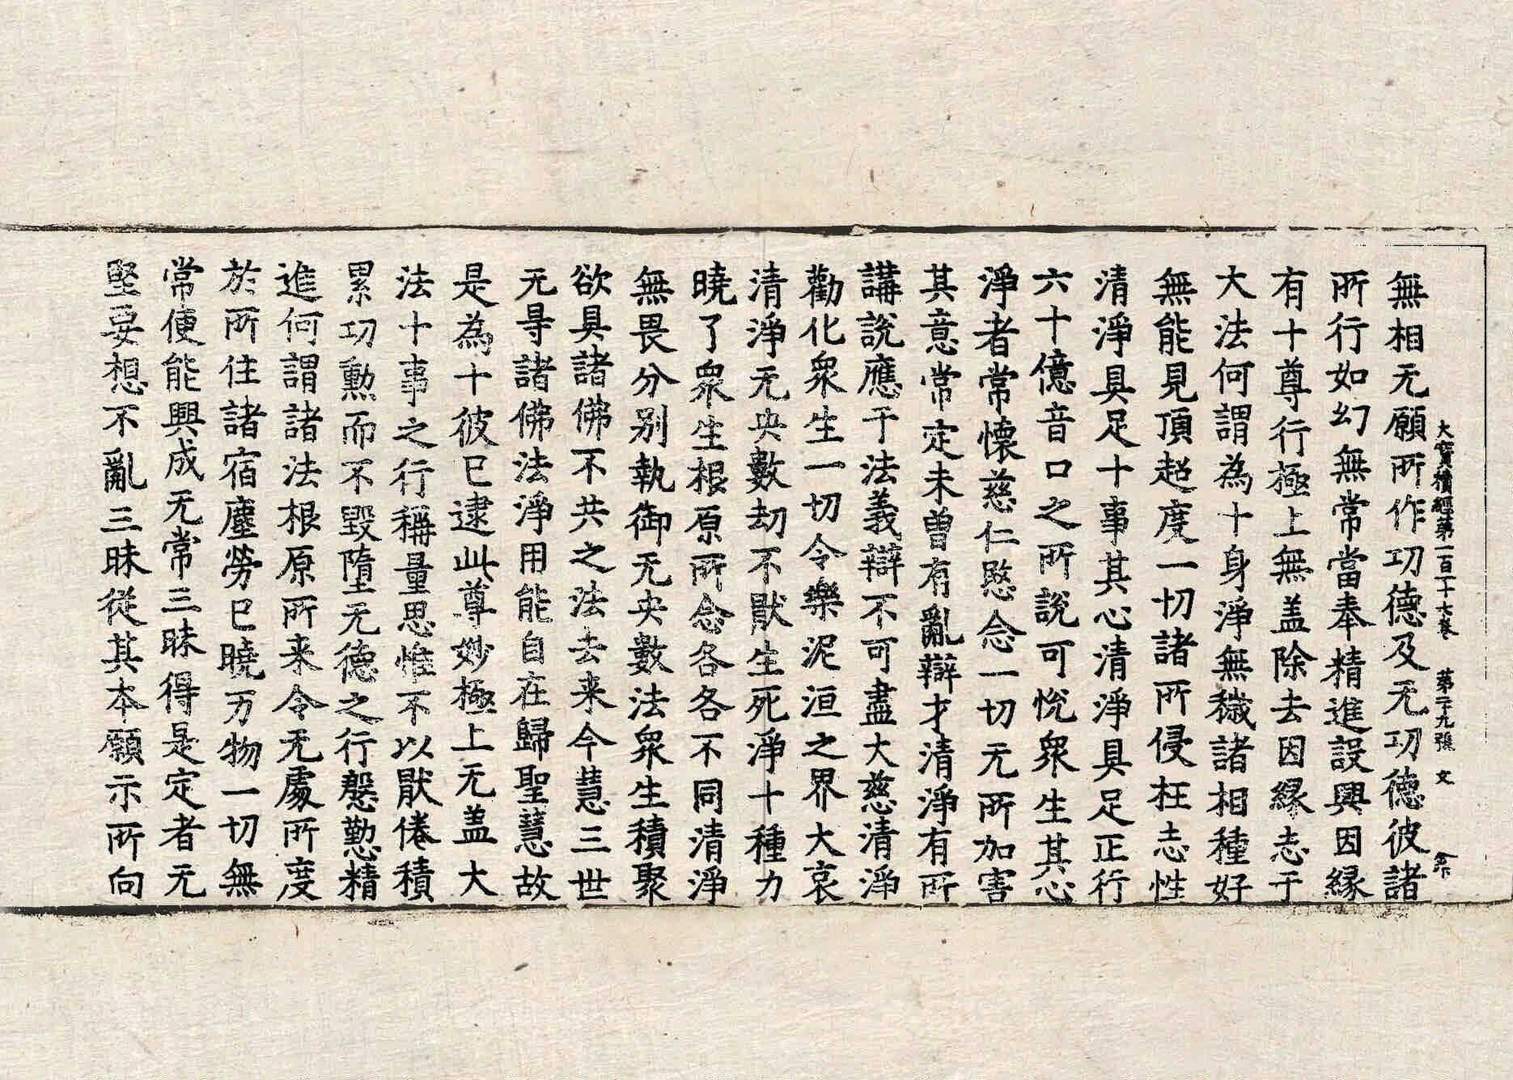 大寶積經第一百十七卷　第二十九張　文
無相无願所作功德及无功德彼諸
所行如幻無常當奉精進設興因緣
有十尊行極上無盖除去因緣志于
大法何謂為十身淨無穢諸相種好
無能見頂超度一切諸所侵枉志性
清淨具足十事其心清淨具足正行
六十億音口之所說可悅衆生其心
淨者常懷慈仁愍念一切无所加害
其意常定未曾有亂辯才清淨有所
講說應于法義辯不可盡大慈清淨
勸化衆生一切令樂泥洹之界大哀
清淨无央數劫不猒生死淨十種力
曉了衆生根原所念各各不同清淨
無畏分别執御无央數法衆生積聚
欲具諸佛不共之法去来今慧三世
无㝵諸佛法淨用能自在歸聖慧故
是為十彼已逮此尊妙極上无盖大
法十事之行稱量思惟不以猒倦積
累功勲而不毀墮无德之行慇懃精
進何謂諸法根原所来令无處所度
於所住諸宿塵勞已曉万物一切無
常便能興成无常三昧得是定者无
堅妄想不亂三昧從其本願示所向